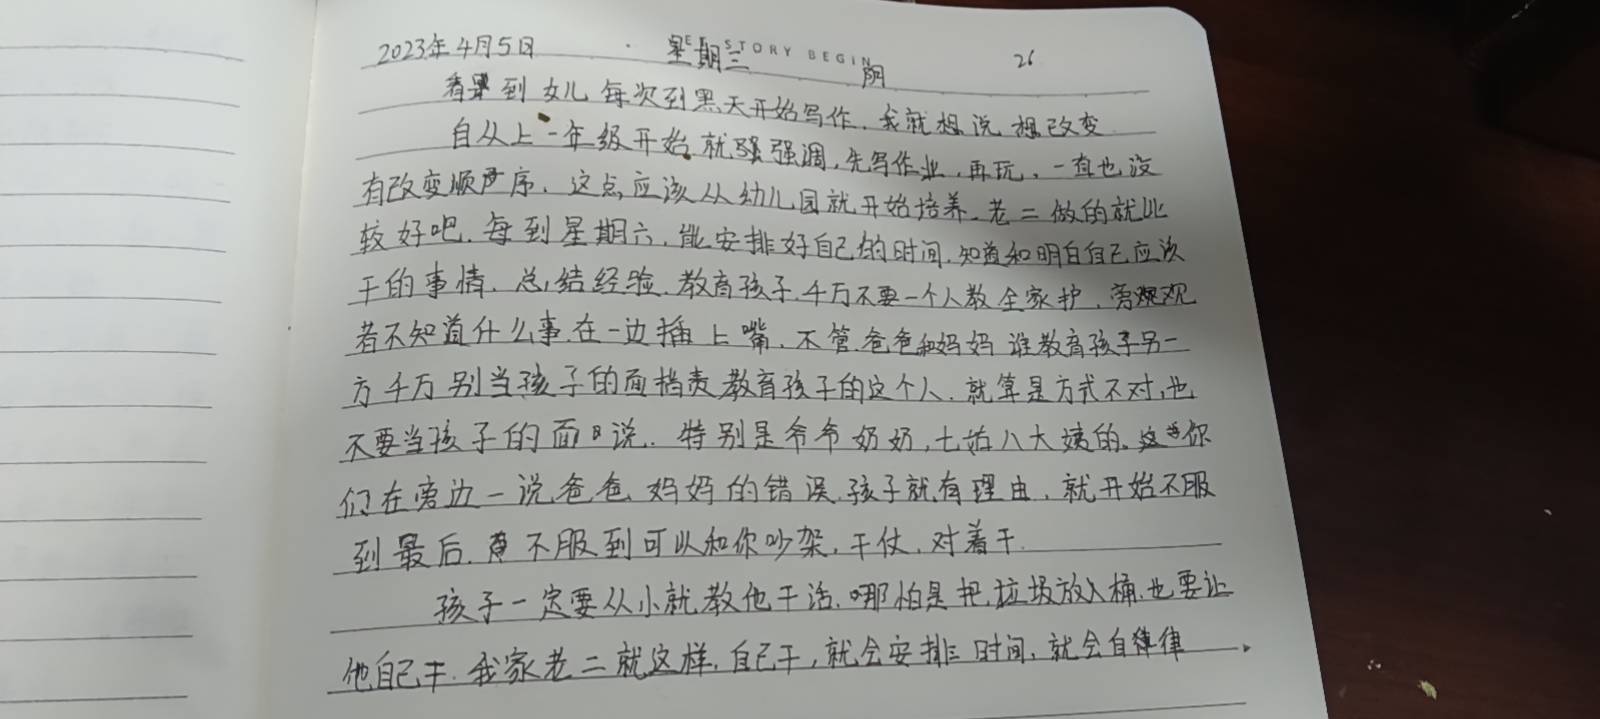 2023年4月5日 星期三 阴 26
STORY BEGIN
看到女儿每次到黑天开始写作.我就想说想改变
自从上一年级开始就强强调,先写作业,再玩,一直也没
有改变顺序.这点应该从幼儿园就开始培养.老二做的就比
较好吧.每到星期六,能安排好自己的时间.知道和明白自己应该
干的事情.总结经验.教育孩子.千万不要一个人教全家护,旁观
者不知道什么事.在一边插上嘴.不管爸爸和妈妈谁教育孩子另一
方千万别当孩子的面指责教育孩子的这个人.就算是方式不对,也
不要当孩子的面说.特别是爷爷奶奶,七姑八大姨的.你
们在旁边一说爸爸妈妈的错误.孩子就有理由.就开始不服
到最后.不服到可以和你吵架,干仗.对着干.
孩子一定要从小就教他干活.哪怕是把垃圾放入桶.也要让
他自己干.我家老二就这样,自己干,就会安排时间,就会自律